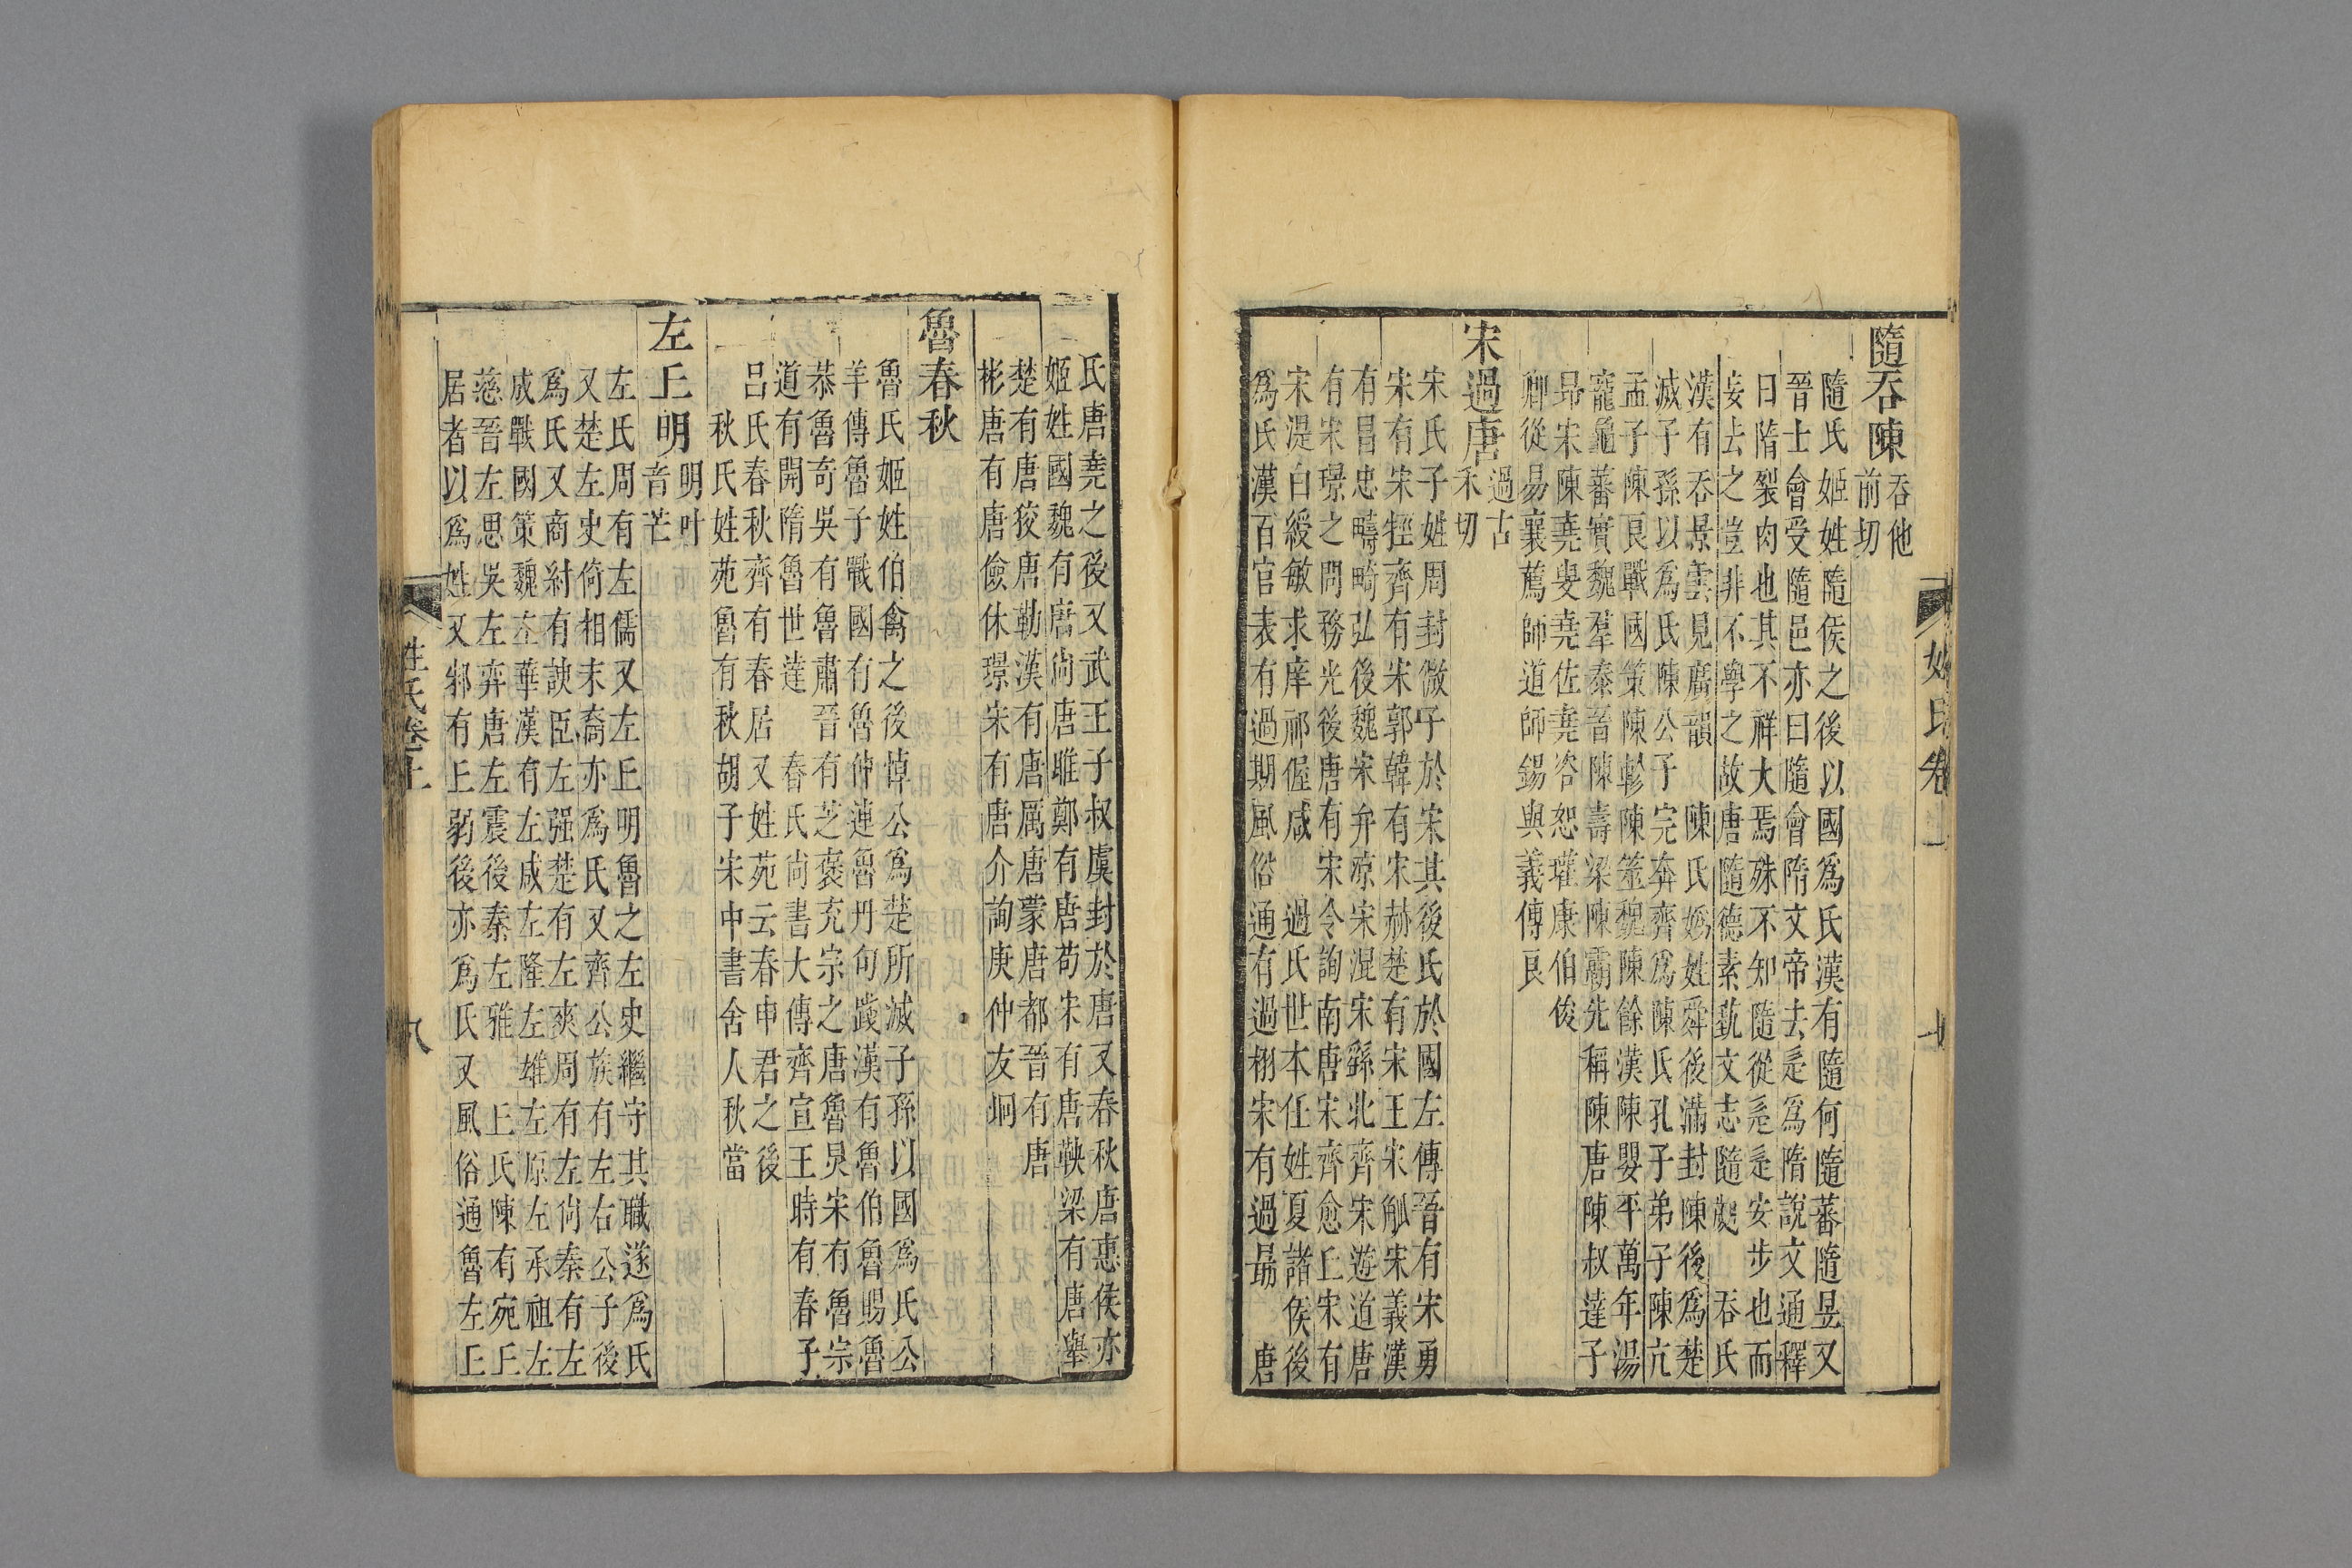 隨吞陳
吞他
前切
隨氏姬姓隨侯之後以國爲氏漢有隨何隨蕃隨昱又
晉士會受隨邑亦曰隨會隋文帝去辵爲隋說文通釋
曰隋裂肉也其不祥大焉殊不知隨從辵辵安步也而
妄去之豈非不學之故唐隨德素藝文志隨巢 吞氏
漢有吞景雲見廣韻 陳氏嬀姓舜後滿封陳後爲楚
滅子孫以爲氏陳公子完奔齊爲陳氏孔子弟子陳亢
孟子陳良戰國策陳軫陳筮魏陳餘漢陳嬰平萬年湯
寵龜蕃實魏羣泰晉陳壽梁陳霸先稱陳唐陳叔達子
昻宋陳堯叟堯佐堯咨恕瓘康伯俊
卿從易襄薦師道師錫與義傅良
宋過唐
過古
禾切
宋氏子姓周封微子於宋其後氏於國左傳晉有宋勇
宋有宋牼齊有宋郭韓有宋赫楚有宋王宋觚宋義漢
有昌忠疇畸弘後魏宋弁凉宋混宋繇北齊宋遊道唐
有宋璟之問務光後唐有宋令詢南唐宋齊愈丘宋有
宋湜白綬敏求庠祁偓咸 過氏世本任姓夏諸侯後
爲氏漢百官表有過期風俗通有過栩宋有過勗 唐
姓氏卷上
氏唐堯之後又武王子叔虞封於唐又春秋唐惠侯亦
姬姓國魏有唐尙唐雎鄭有唐茍宋有唐鞅梁有唐舉
楚有唐狡唐勒漢有唐厲唐蒙唐都晉有唐
彬唐有唐儉休璟宋有唐介詢庚仲友坰
魯春秋
魯氏姬姓伯禽之後悼公爲楚所滅子孫以國爲氏公
羊傳魯子戰國有魯仲連魯丹句踐漢有魯伯魯賜魯
恭魯奇吳有魯肅晉有芝褒充宗之唐魯炅宋有魯宗
道有開隋魯世達 春氏尙書大傳齊宣王時有春子
呂氏春秋齊有春居又姓苑云春申君之後
秋氏姓苑魯有秋胡子宋中書舍人秋當
左丘明
明叶
音芒
左氏周有左儒又左丘明魯之左史繼守其職遂爲氏
又楚左史倚相末裔亦爲氏又齊公族有左右公子後
爲氏又商紂有諛臣左强楚有左爽周有左尙秦有左
成戰國策魏左華漢有左咸左隆左雄左原左承祖左
慈晉左思吳左弈唐左震後秦左雅 丘氏陳有宛丘
居者以爲姓又邾有丘弱後亦爲氏又風俗通魯左丘
姓氏卷上
八